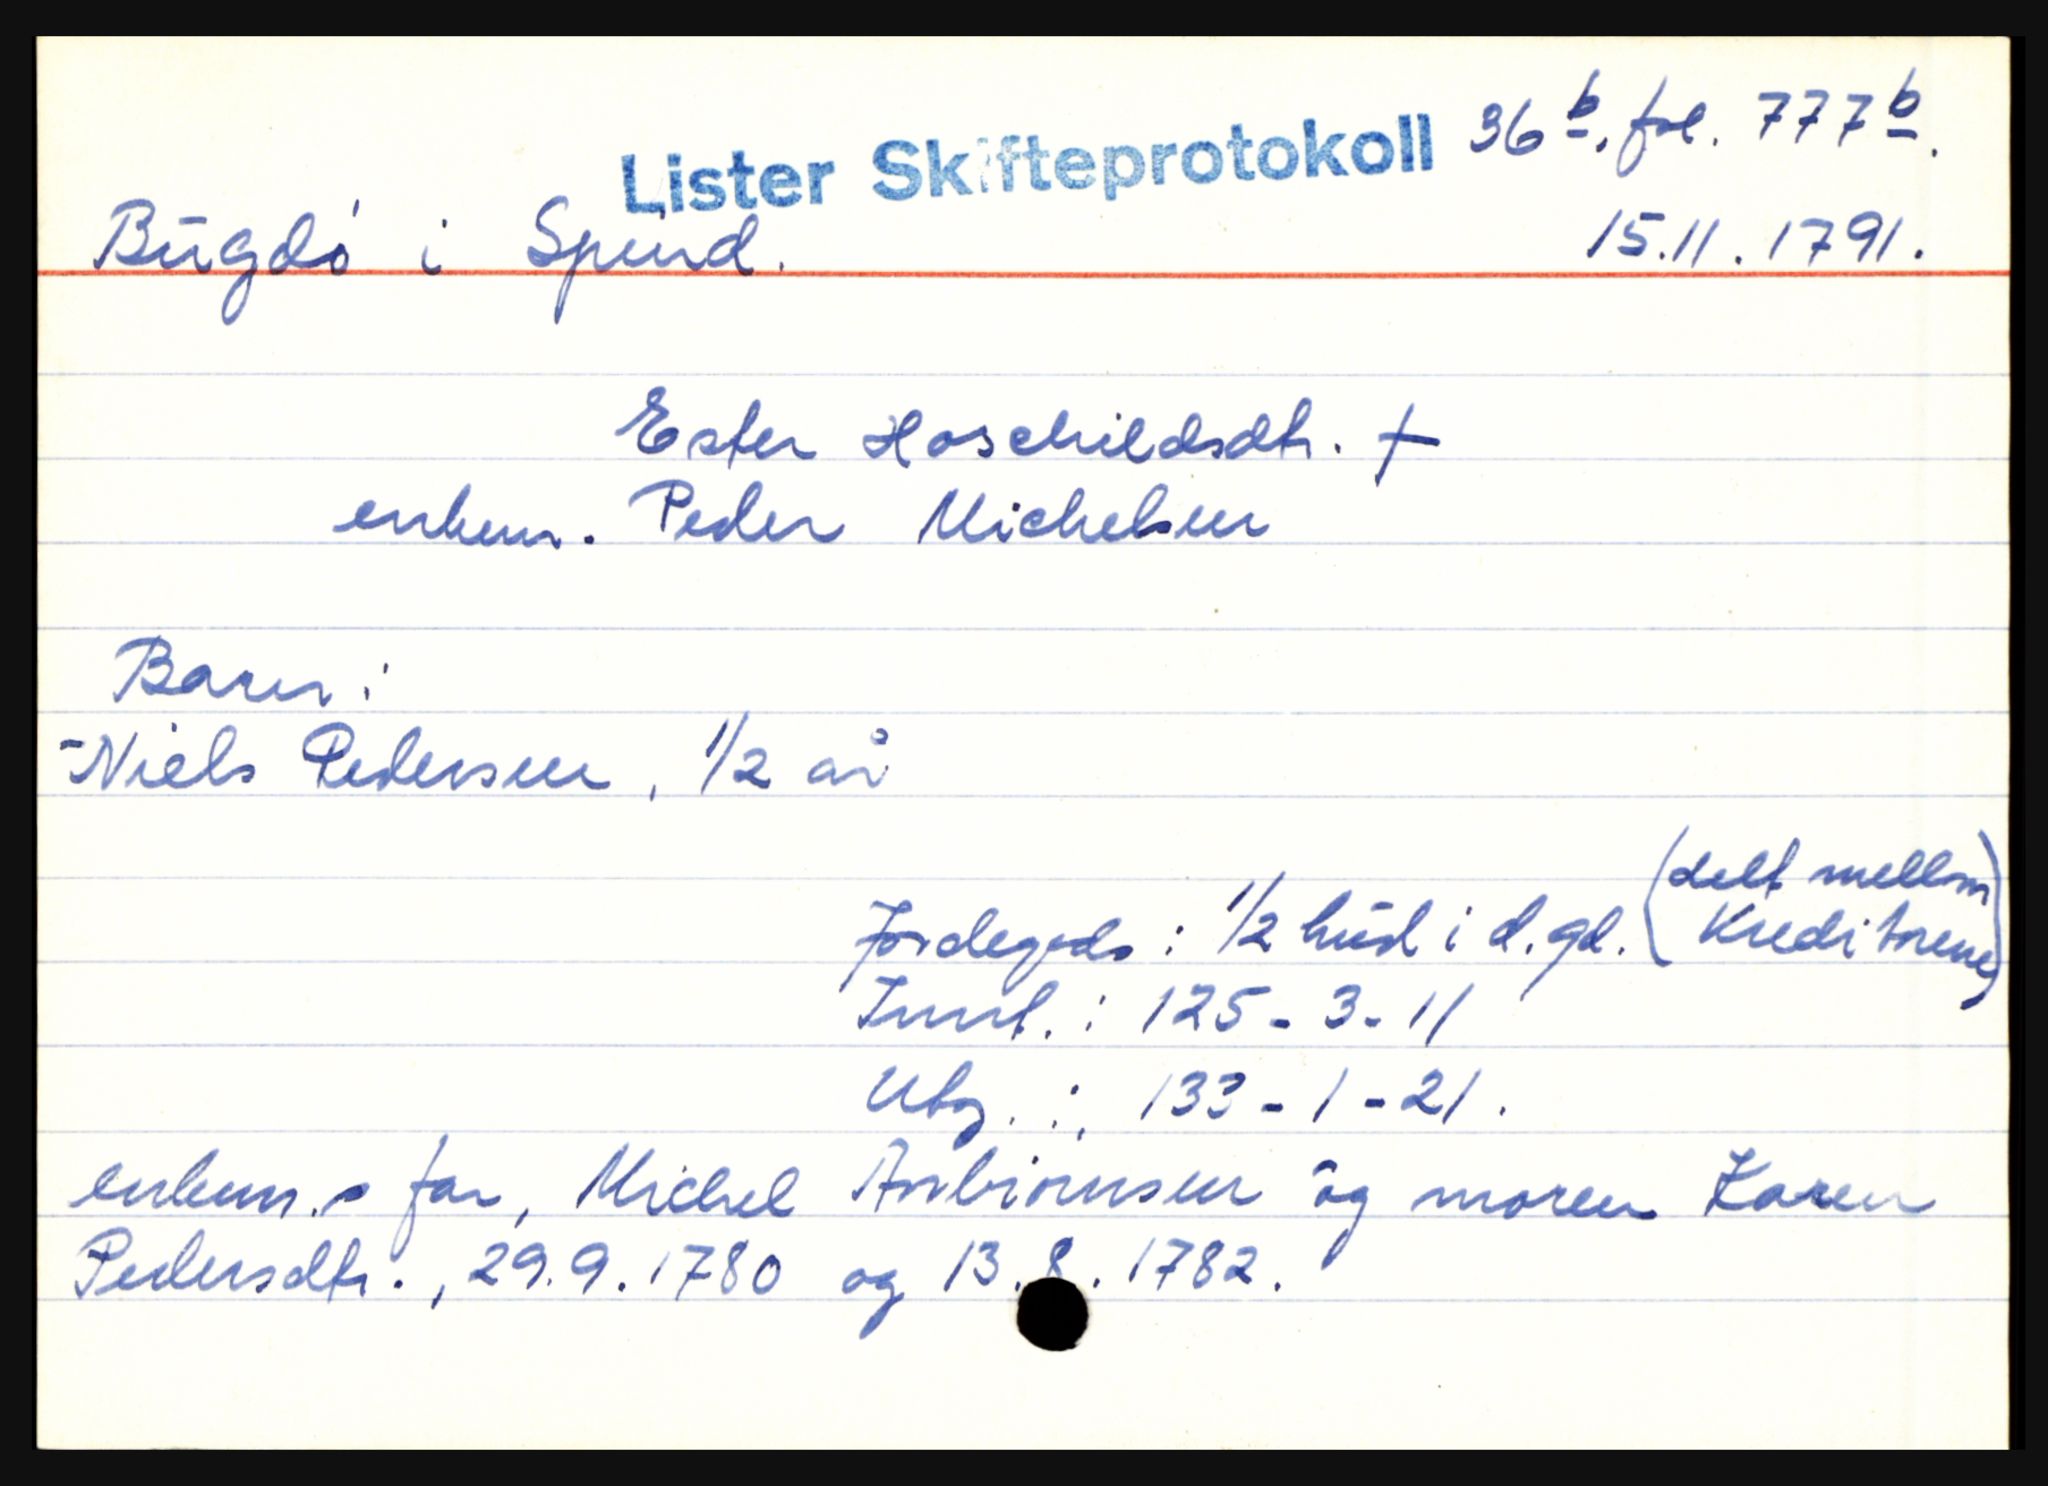 Lister Skifteprotokoll 36 b, fol. 777 b.
Bugdø i Spind. 15.11.1791.
Ester Hoschildsdtr. †
enkem. Peder Michelsen
Barn:
-Niels Pedersen, 1/2 år
Jordegods: 1/2 hud i d. gd. (delt mellom
Kreditorene)
Innt.: 125-3-11
Utg.: 133-1-21.
enkem.s far, Michel Asbiørnsen og moren Karen
Pedersdtr., 29.9.1780 og 13.8.1782.